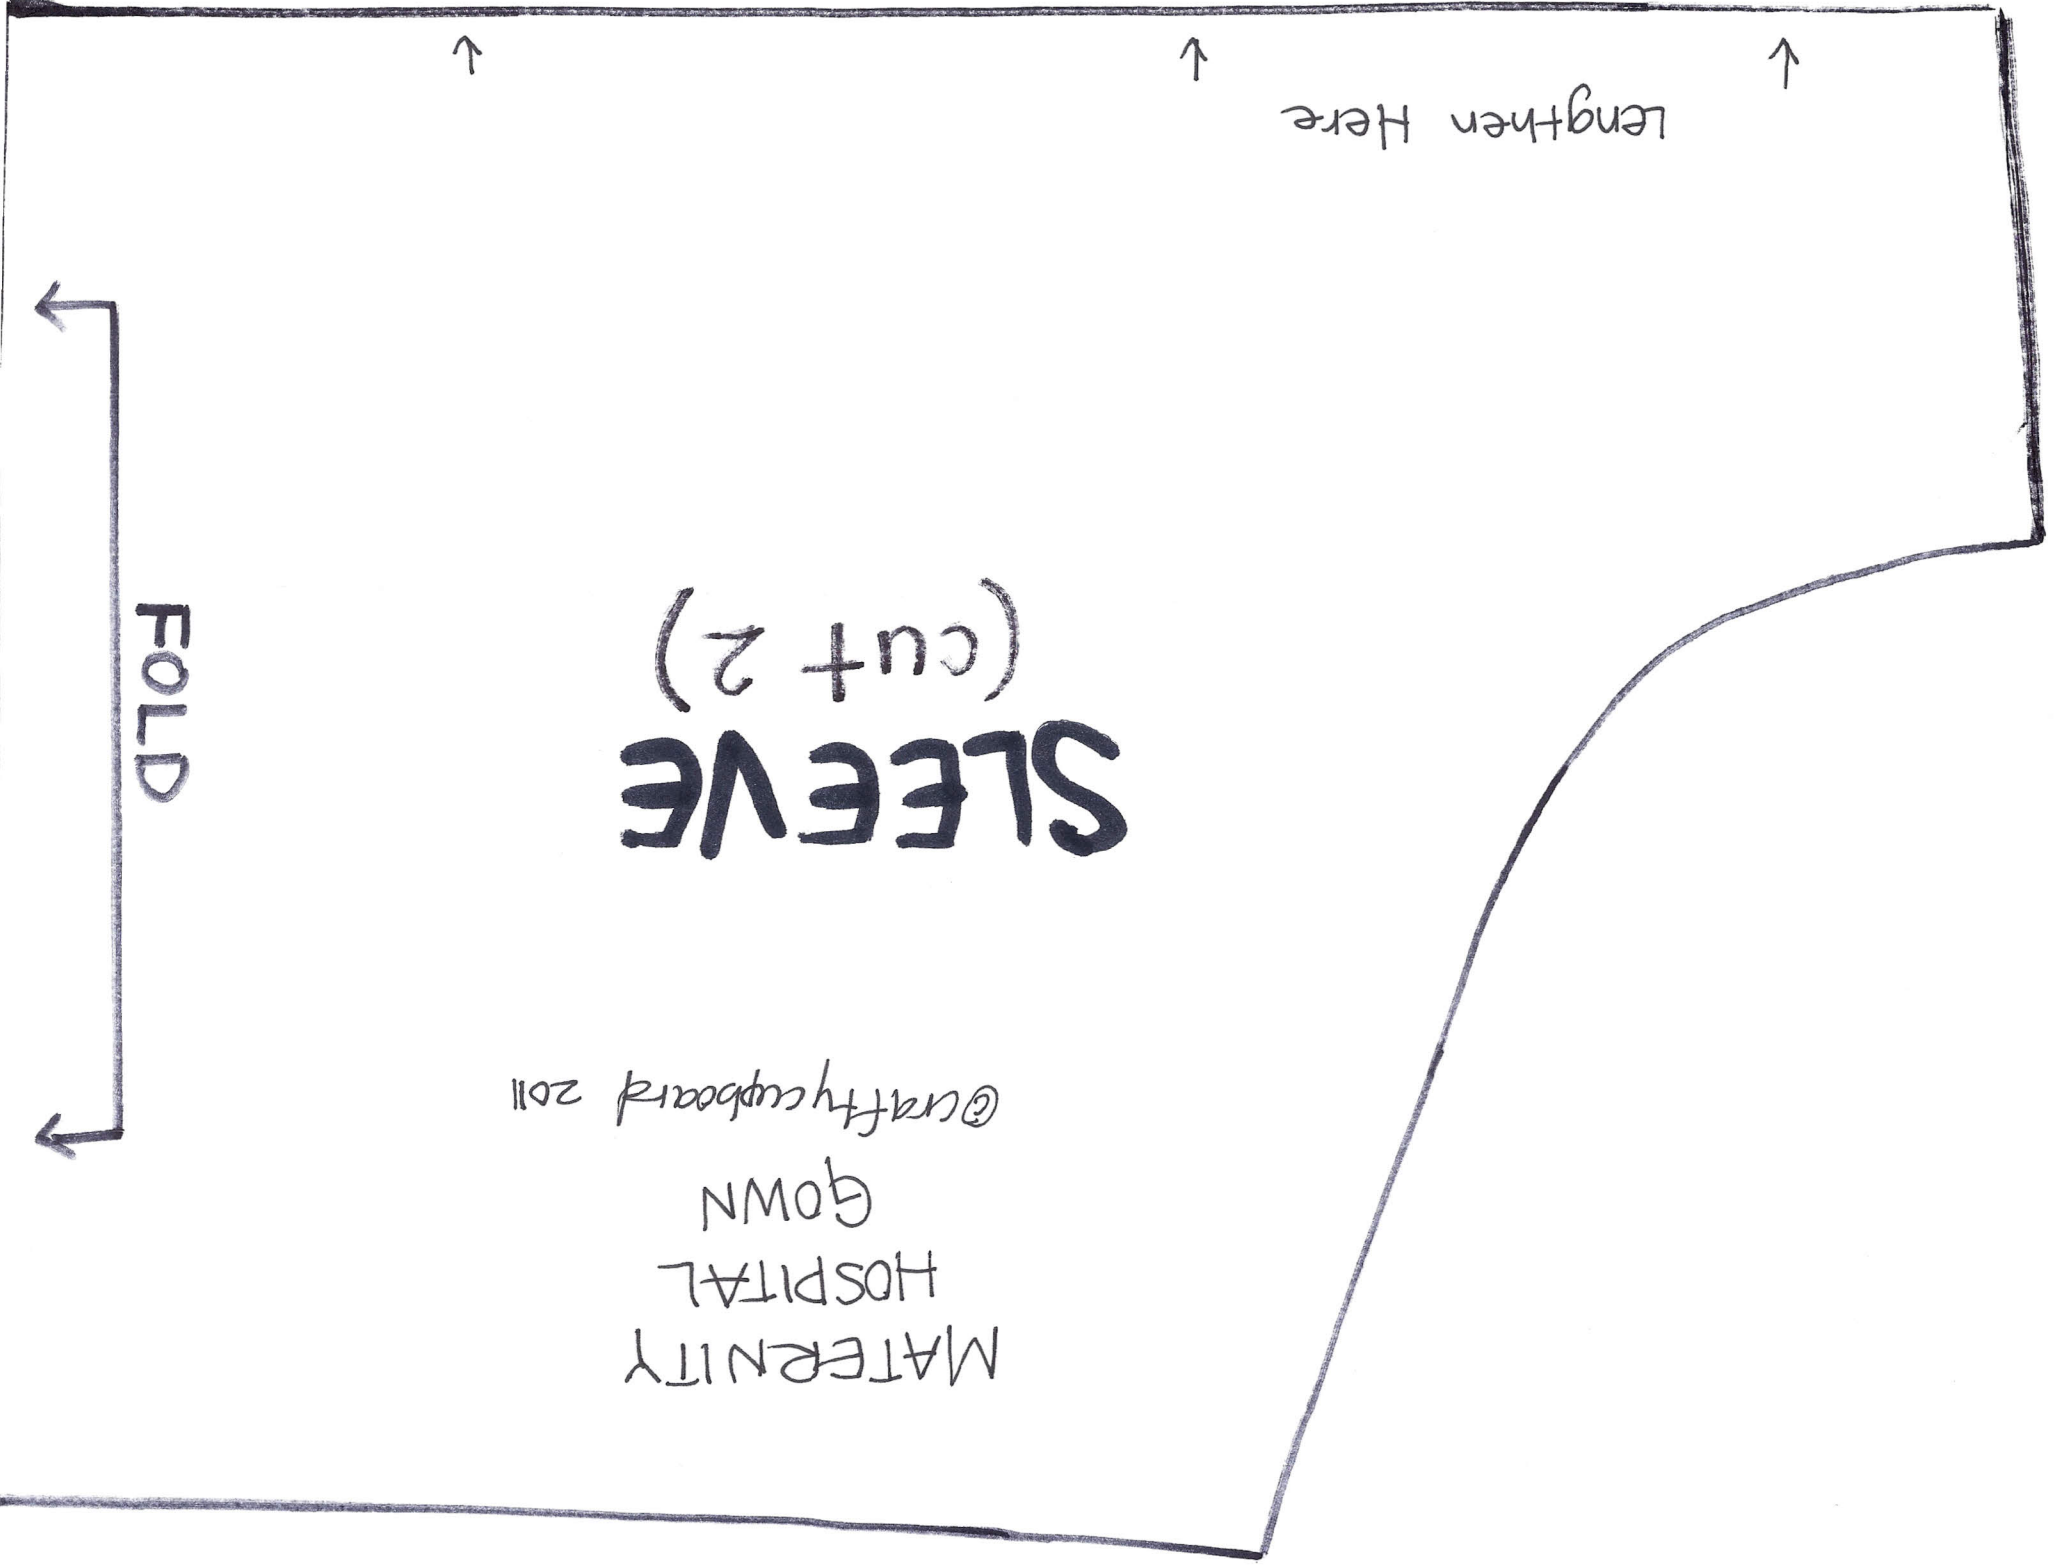 MATERNITY
HOSPITAL
GOWN
©craftycupboard 2011
SLEEVE
(cut 2)
FOLD
Lengthen Here